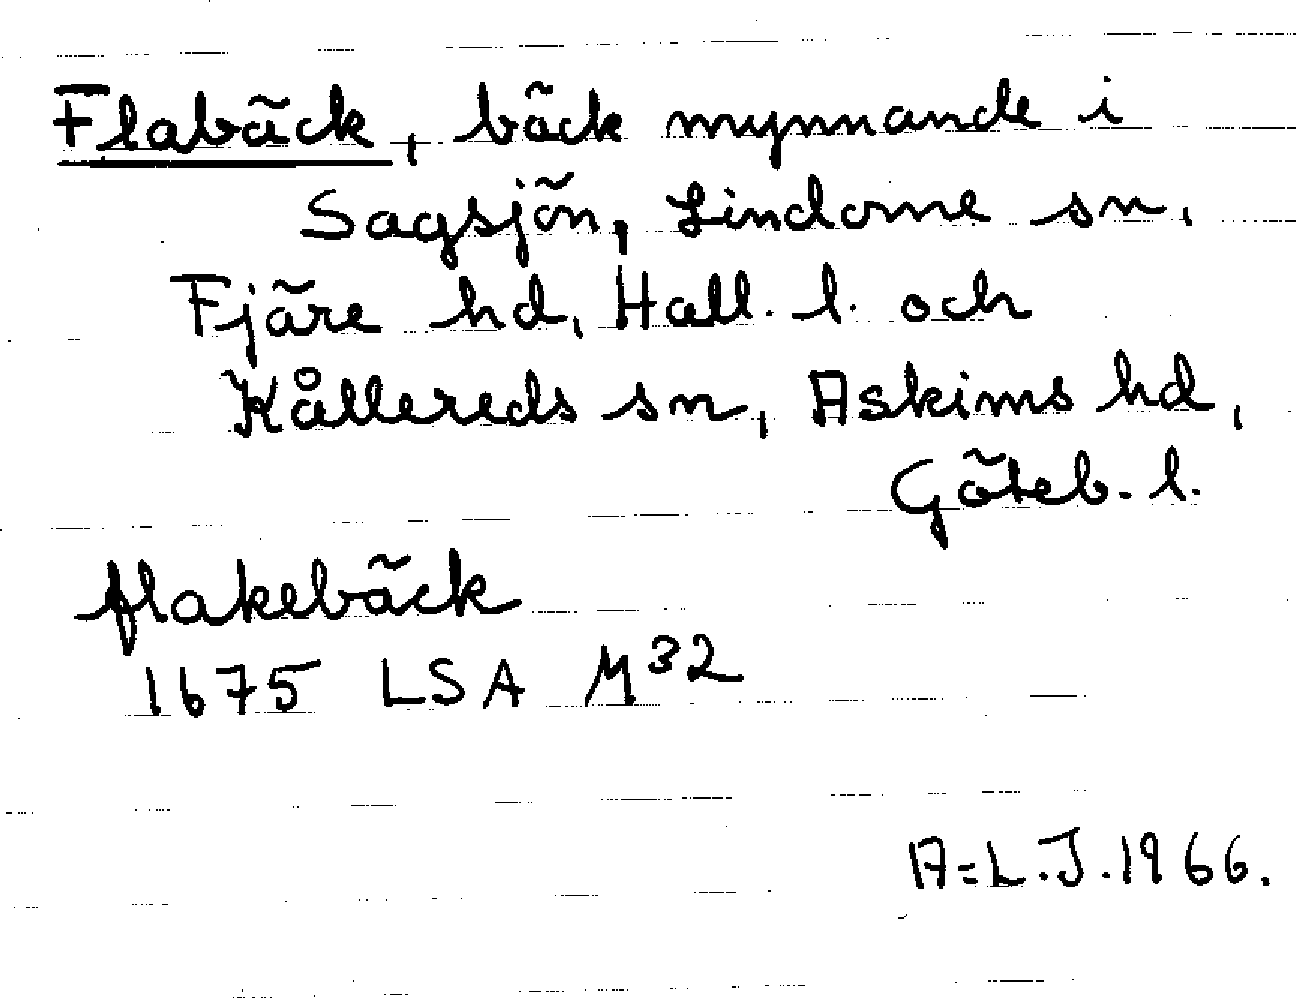 Flabäck, bäck mynnande i
Sagsjön, Lindome sn,
Fjäre hd, Hall. l. och
Kållereds sn, Askims hd,
Göteb. l.
flakebäck
1675 LSA M³²
A=L.J.1966.